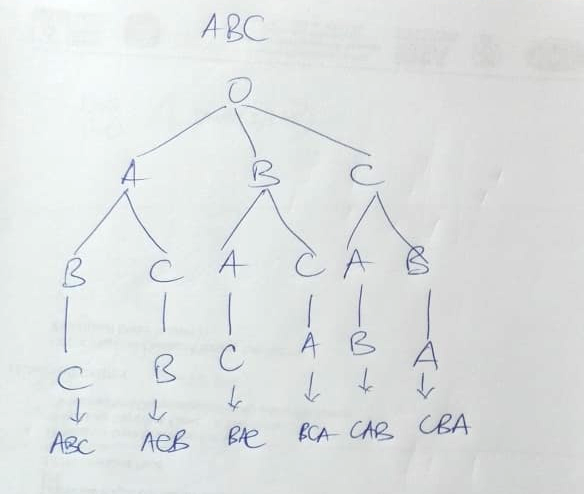 ABC
O
A B C
B C A C A B
C B C A B A
ABC ACB BAC BCA CAB CBA